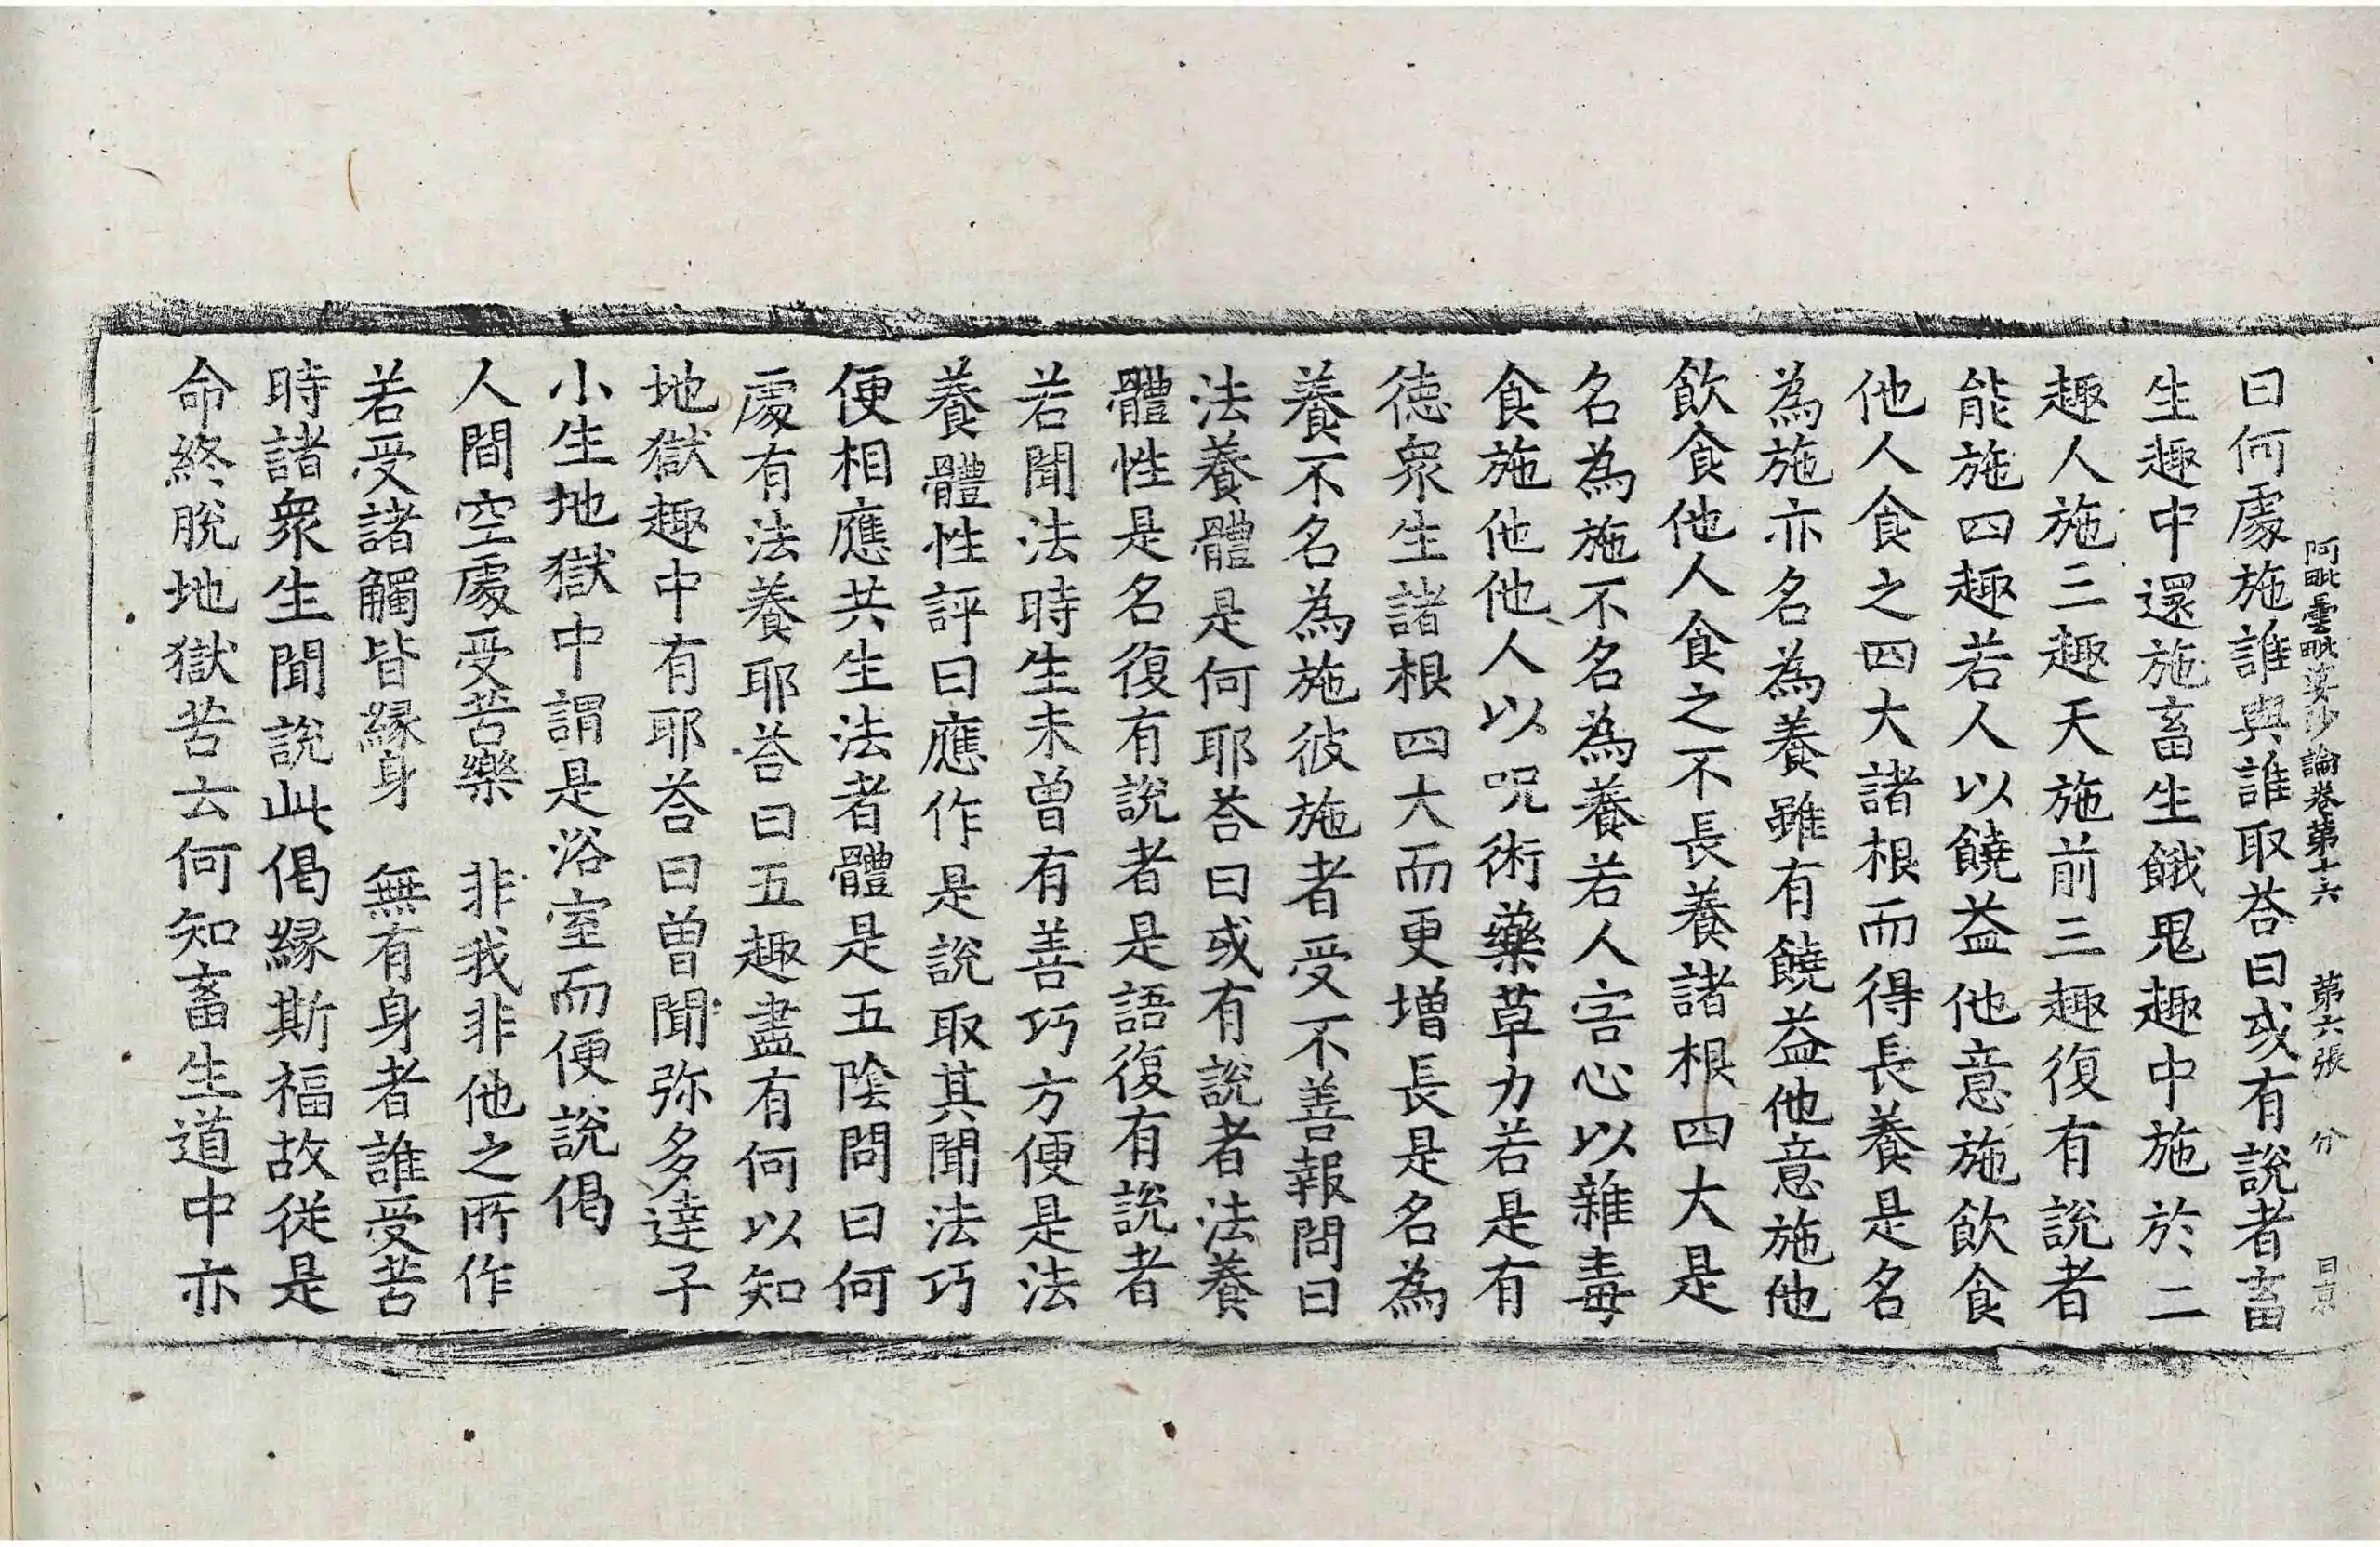 阿毗曇毗婆沙論卷第十六 第六張 分
曰何處施誰與誰取荅曰或有說者畜
生趣中還施畜生餓鬼趣中施於二
趣人施三趣天施前三趣復有說者
能施四趣若人以饒益他意施飲食
他人食之四大諸根而得長養是名
為施亦名為養雖有饒益他意施他
飲食他人食之不長養諸根四大是
名為施不名為養若人害心以雜毒
食施他他人以呪術藥草力若是有
德衆生諸根四大而更增長是名為
養不名為施彼施者受不善報問曰
法養體是何耶荅曰或有說者法養
體性是名復有說者是語復有說者
若聞法時生未曾有善巧方便是法
養體性評曰應作是說取其聞法巧
便相應共生法者體是五陰問曰何
處有法養耶荅曰五趣盡有何以知
地獄趣中有耶荅曰曾聞弥多達子
小生地獄中謂是浴室而便說偈
人間空處受苦樂 非我非他之所作
若受諸觸皆緣身 無有身者誰受苦
時諸衆生聞說此偈緣斯福故從是
命終脫地獄苦云何知畜生道中亦